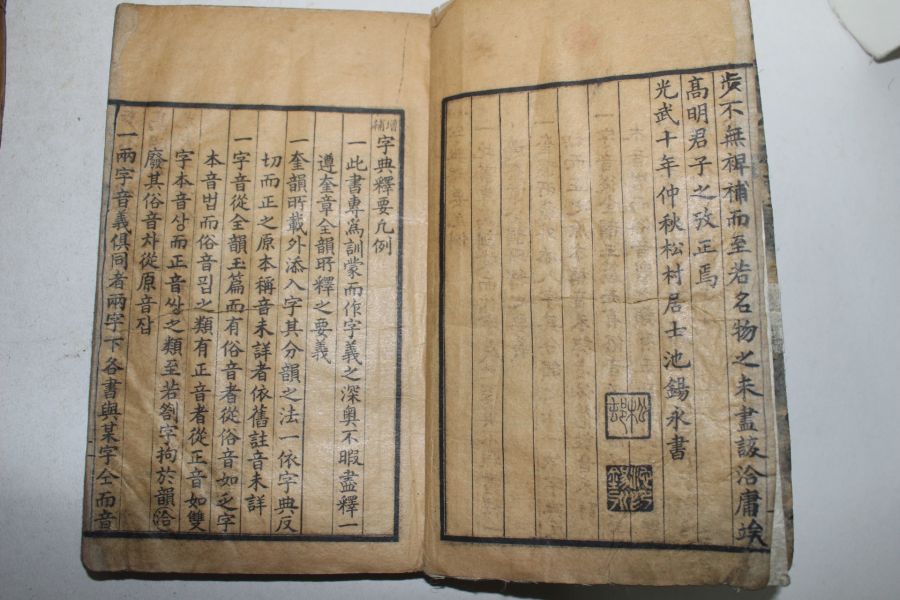 步不無裨補而至若名物之未盡該洽庸埃
高明君子之攷正焉
光武十年仲秋松村居士池錫永書
松村
增補 字典釋要凡例
一此書專爲訓蒙而作字義之深奧不暇盡釋一
遵奎章全韻所釋之要義
一奎韻所載外添入字其分韻之法一依字典反
切而正之原本稱音未詳者依舊註音未詳
一字音從全韻玉篇而有俗音者從俗音如乏字
本音범而俗音핍之類有正音者從正音如雙
字本音상而正音쌍之類至若劄字拘於韻洽
廢其俗音차從原音잡
一兩字音義俱同者兩字下各書與某字仝而音